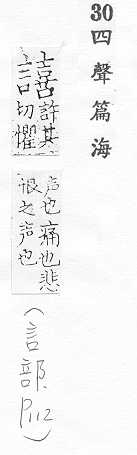 30 四聲篇海
譆 許其
切懼
声也痛也悲
恨之声也
(言部. P112)